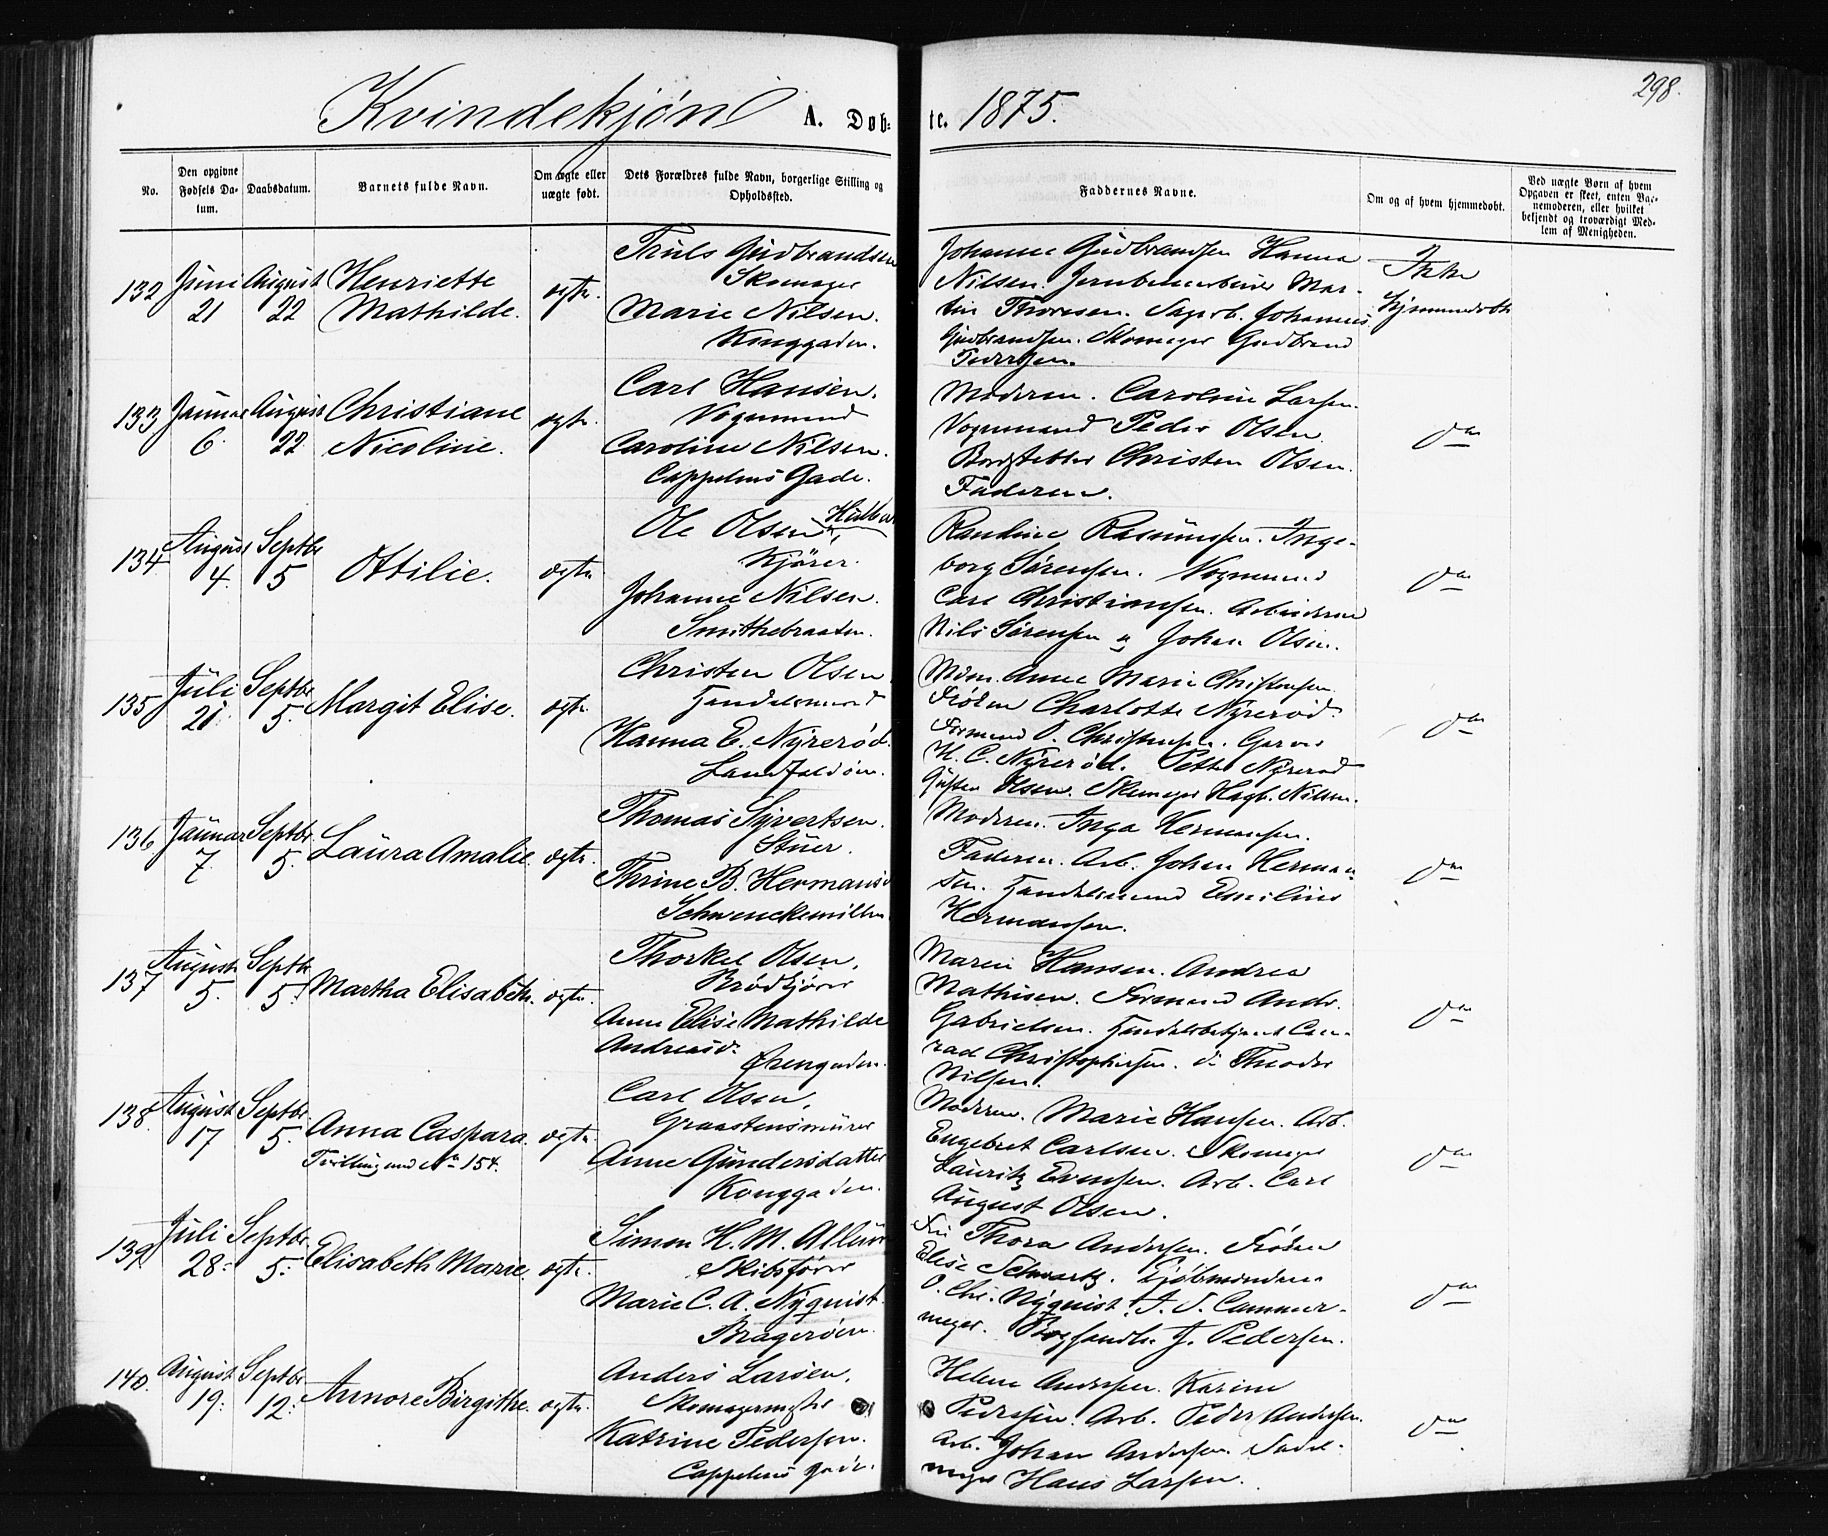 298.
Kvindekjøn A. Døb- te. 1875.
No.
Den opgivne Fødsels Da- tum.
Daabsdatum.
Barnets fulde Navn.
Om ægte eller uægte født.
Dets Forældres fulde Navn, borgerlige Stilling og Opholdssted.
Faddernes Navne.
Om og af hvem hjemmedøbt.
Ved uægte Børn af hvem Opgaven er skeet, enten Bar- nemoderen, eller hvilket bekjendt og troværdigt Med- lem af Menigheden.
132
Juni 21
August 22
Henriette
Mathilde.
ægte.
Truls Gudbrandsen
Skomager
Marie Nilsen.
Konggaden.
Johanne Gudbrandsen Hanna
Nilsen. Jernbanearbeider Mar-
tin Thoresen. Sagarb. Johannes
Gudbrandsen. Skomager Gudbrand
Pedersen.
Ikke
hjemmedøbt
133
Januar 6.
August 22
Christiane
Nicoline.
ægte.
Carl Hansen.
Vognmand
Caroline Nilsen.
Cappelens Gade.
Moderen. Caroline Larsen.
Vognmand Peder Olsen.
Bordstabler Christen Olsen.
Faderen.
do
134
August 4.
Septbr 5
Ottilie.
ægte
Ole Olsen
Kjører.
Johanne Nilsen.
Smithebraaten.
Randine Rasmussen. Inge-
borg Sørensen. Vognmand
Carl Christiansen. Arbeiderne
Nils Sørensen og Johan Olsen.
do
135
Juli 21.
Septbr. 5.
Margit Elise.
ægte.
Christen Olsen
Handelsmand
Hanna E. Nyrerød.
Landfaldøen.
Mdm. Anne Marie Christensen
Frøken Charlotte Nyrerød.
Formand O. Christensen. Garver
H. C. Nyrerød. Petter Nyrerød
Gusten Olsen. Skomager Hagb. Nilsen.
do
136
Januar 7.
Septbr. 5.
Laura Amalie.
ægte.
Thomas Syvertsen.
Stuer.
Thrine B. Hermansd
Schwenckemillen
Moderen. Inga Hermansen.
Faderen. Arb. Johan Herman-
sen. Handelsmand Emilius
Hermansen.
do
137
August 5.
Septbr 5.
Martha Elisabeth.
ægte.
Thorkel Olsen,
Brødkjører
Anne Elise Mathilde
Andreasd.
Øvengaden.
Maren Hansen. Andrea
Mathisen. Formand Andr.
Gabrielsen. Handelsbetjent Con-
rad Christophersen. do Theodor
Nilsen.
do
138.
August 17
Septbr. 5.
Anna Caspara.
Tvilling med No 154.
ægte
Carl Olsen,
Graastensmurer
Anne Gundersdatter
Konggaden.
Moderen. Marie Hansen. Arb.
Engebret Carlsen. Skomager
Lauritz Evensen. Arb. Carl
August Olsen.
do
139
Juli 28.
Septbr. 5.
Elisabeth Marie.
ægte.
Simon H. M.
Skibsfører
Marie C. A. Nyquist.
Bragerøen.
Fru Thora Andersen. Frøken
Elise Schwartz. Kjøbmændene
O. Chr. Nyquist. J. S. Cammer-
meyer. Boghandler J. Pedersen.
do
140.
August 19.
Septbr. 12.
Annore Birgithe.
ægte.
Anders Larsen.
Skomagermester
Katrine Pedersen.
Cappelens Gade.
Helene Andersen. Karine
Pedersen. Arb. Peder Andersen.
Arb. Johan Andersen. Sadel-
mager Hans Larsen.
do